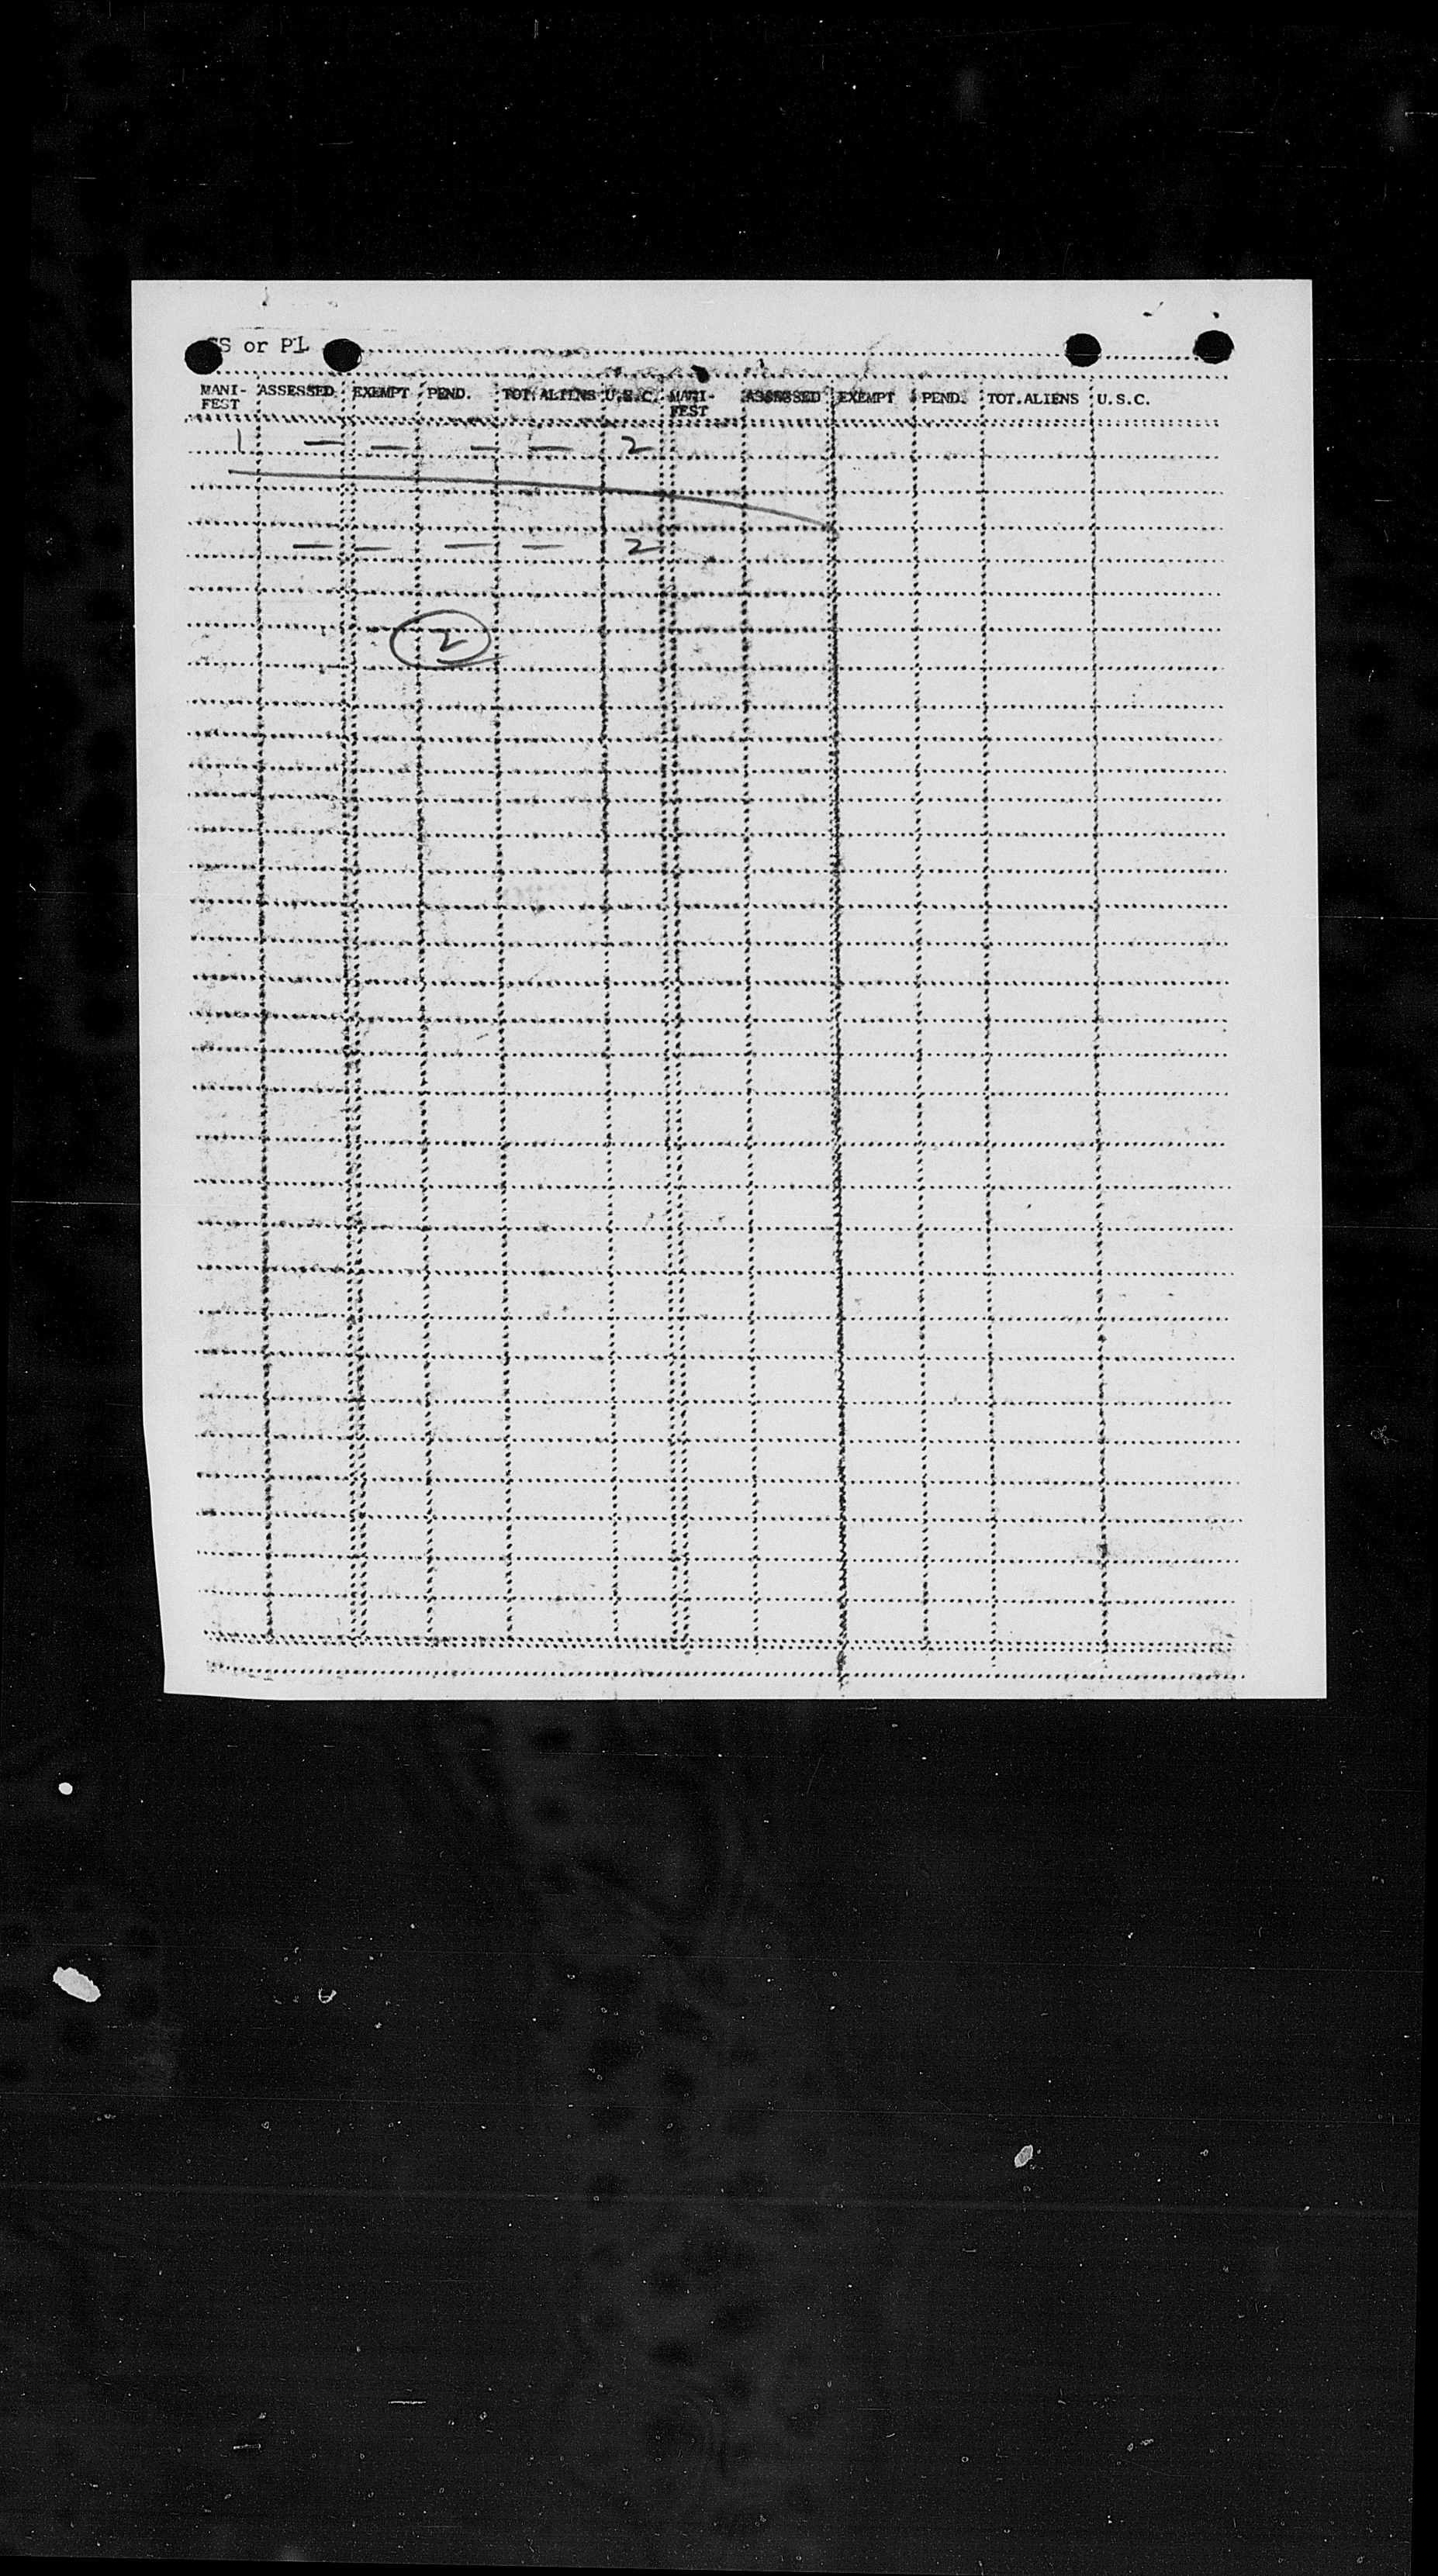 SS or PL
MANI-FEST ASSESSED EXEMPT PEND. TOT. ALIENS U.S.C. MANI-FEST ASSESSED EXEMPT PEND. TOT.ALIENS U.S.C.
1 — — — — 2
— — — — 2
2